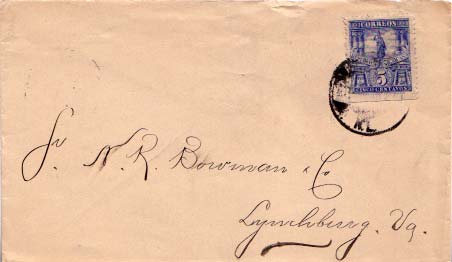 CORREOS
5
CINCO CENTAVOS
N.L.
Sr. N. R. Bowman & Co
Lynchburg. Va.